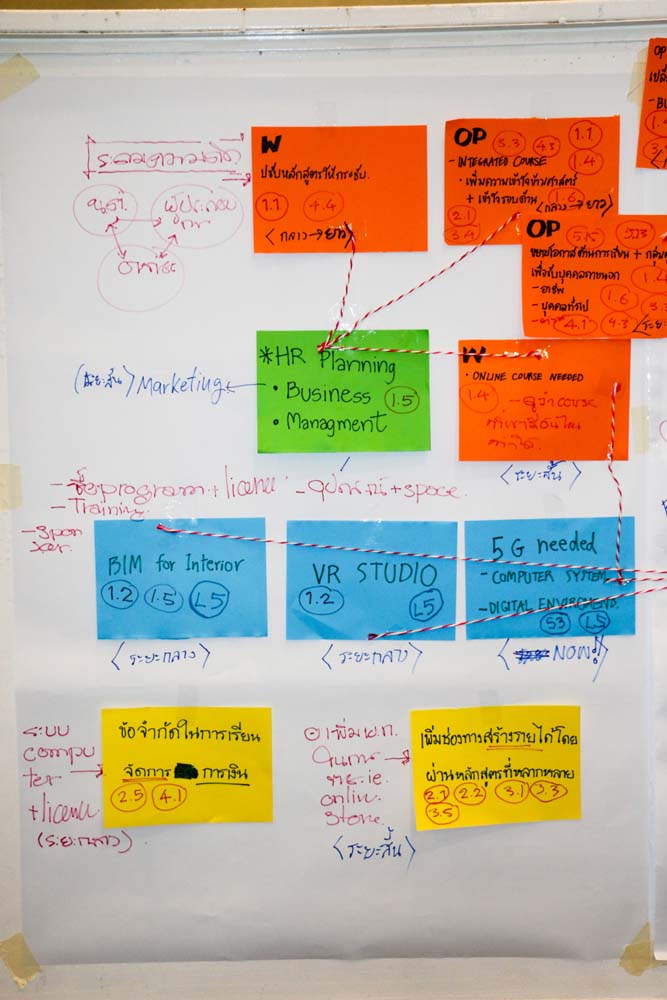 ระดมความคิด
W
ปรับหลักสูตรให้กระชับ
1.1 4.4
<กลาง→ยาว>
OP 3.3 4.3 1.1
- INTEGRATED COURSE 1.4
• เพิ่มความเข้าใจข้ามศาสตร์
+ เข้าใจรอบด้าน 1.6
2.1 <กลาง→ยาว>
3.4
OP
- BU
1.
OP
ขยายโอกาสด้านการเรียน + กลุ่ม
เพื่อรับบุคคลภายนอก 1.4
- อาชีพ 1.6
- บุคคลทั่วไป
4.1 4.3 <ระยะ
*HR Planning
• Business 1.5
• Managment
(ระยะสั้น) Marketing
W
• ONLINE COURSE NEEDED
1.4 - ดูว่า course
<ระยะสั้น>
- ซื้อ program + license - อุปกรณ์ + space
- Training
BIM for Interior
1.2 1.5 L5
<ระยะกลาง>
VR STUDIO
1.2 L5
<ระยะกลาง>
5G needed
- COMPUTER SYSTEM
- DIGITAL ENVIRCMEND.
S3 L5
< NOW!! >
ระบบ
compu
ter
+ license
(ระยะกลาง)
ข้อจำกัดในการเรียน
จัดการ การเงิน
2.5 4.1
online
store
<ระยะสั้น>
เพิ่มช่องทางสร้างรายได้โดย
ผ่านหลักสูตรที่หลากหลาย
2.1 2.2 3.1 3.3
3.5